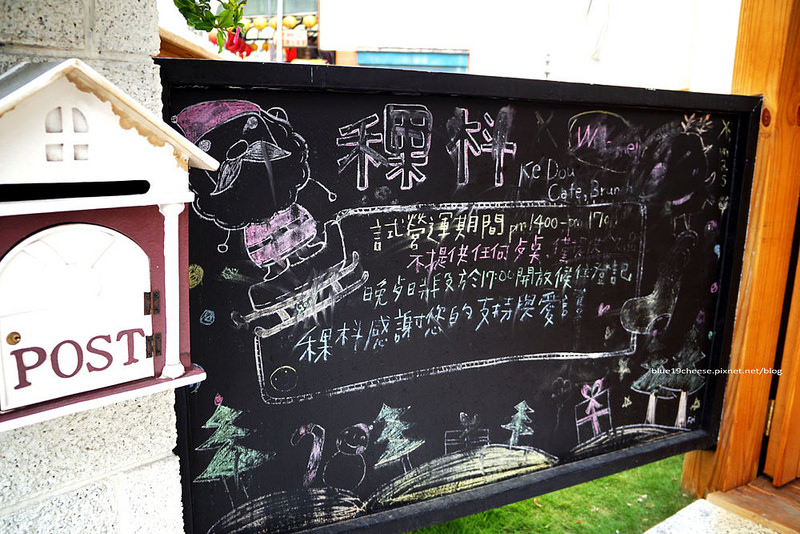 稞枓
Ke Dou
Cafe, Brun
試營運期間 pm 1400-pm 170
不提供任何
晚 時段於17:00開放候位登記
稞枓感謝您的支持與愛護
POST
blue19cheese.pixnet.net/blog